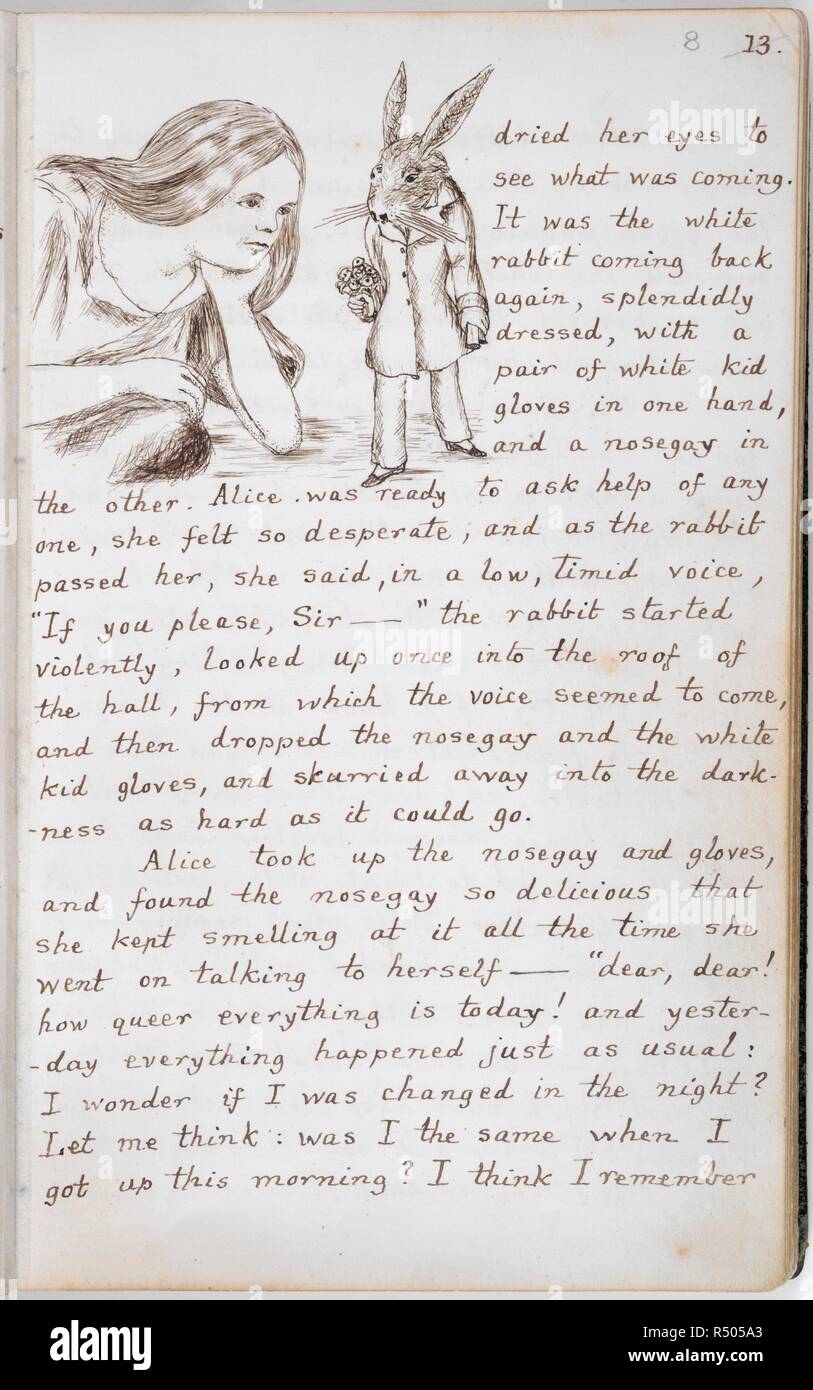 8 13.
dried her eyes to
see what was coming.
It was the white
rabbit coming back
again, splendidly
dressed, with a
pair of white kid
gloves in one hand,
and a nosegay in
the other. Alice was ready to ask help of any
one, she felt so desperate, and as the rabbit
passed her, she said, in a low, timid voice,
"If you please, Sir — " the rabbit started
violently, looked up once into the roof of
the hall, from which the voice seemed to come,
and then dropped the nosegay and the white
kid gloves, and skurried away into the dark-
-ness as hard as it could go.
Alice took up the nosegay and gloves,
and found the nosegay so delicious that
she kept smelling at it all the time she
went on talking to herself — "dear, dear!
how queer everything is today! and yester-
-day everything happened just as usual:
I wonder if I was changed in the night?
Let me think: was I the same when I
got up this morning? I think I remember
alamy
Image ID: R505A3
www.alamy.com